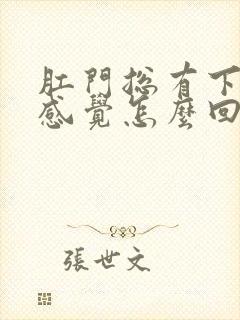 肛門總有下
感覺怎麼回
張世文